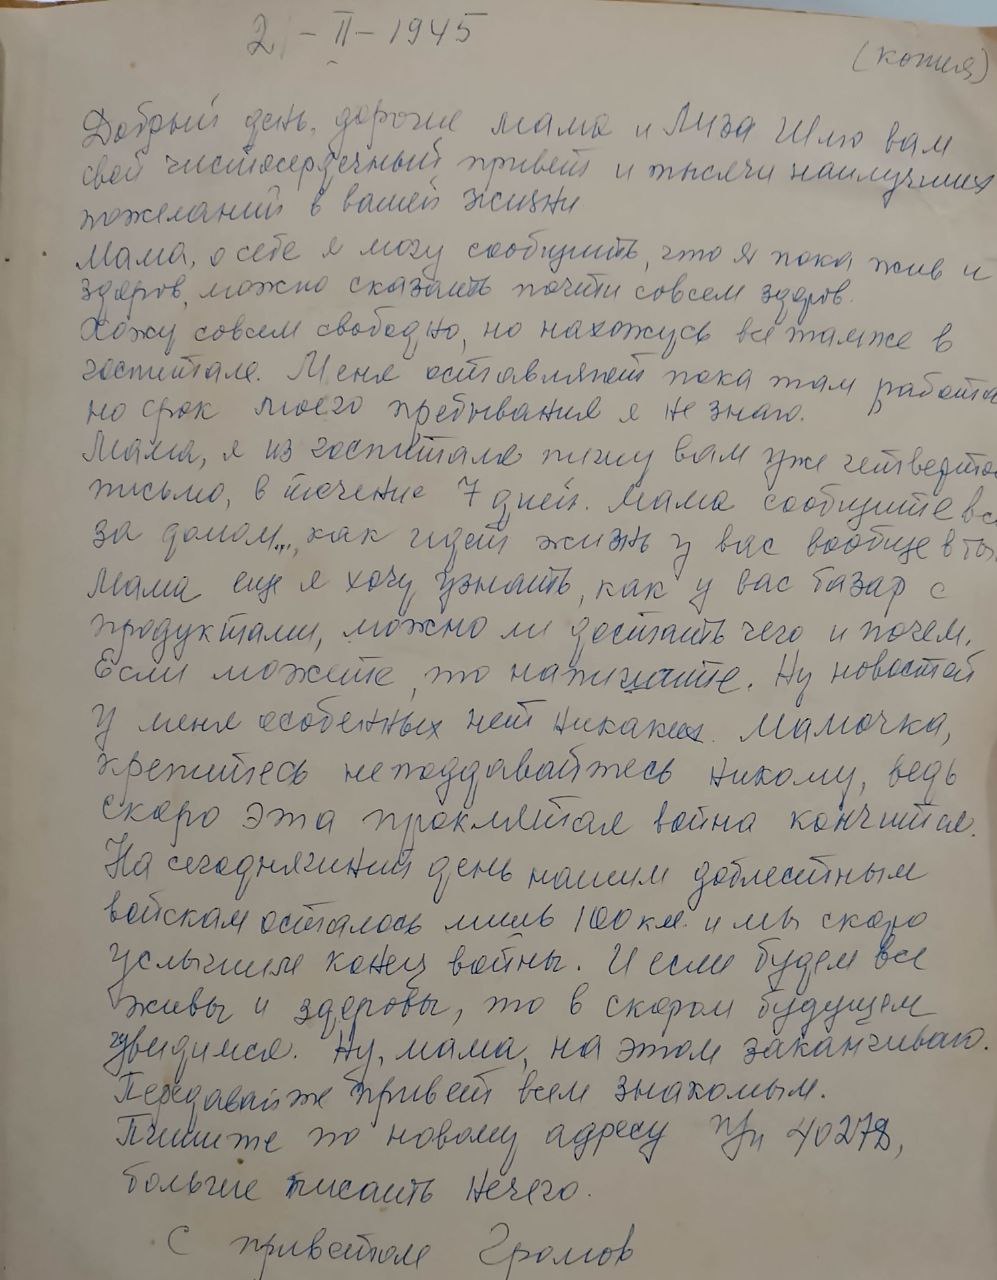 2 - II - 1945
(копия)
Добрый день, дорогие мама и Лиза Шлю вам
свой чистосердечный привет и тысячи наилучших
пожеланий в вашей жизни
Мама, о себе я могу сообщить, что я пока жив и
здоров, можно сказать почти совсем здоров.
Хожу совсем свободно, но нахожусь все тамже в
госпитале. Меня оставляют пока там
но срок моего пребывания я не знаю.
Мама, я из госпиталя пишу вам уже
письмо, в течение 7 дней. Мама сообщите
за домом..., как идет жизнь у вас вообще в
Мама еще я хочу узнать, как у вас базар с
продуктами, можно ли достать чего и почем.
Если можете, то напишите. Ну новостей
у меня особенных нет никаких. Мамочка,
крепитесь неподдавайтесь никому, ведь
скоро эта проклятая война кончится.
На сегодняшний день нашим доблестным
войскам осталось лишь 100 км. и мы скоро
услышим конец войны. И если будем все
живы и здоровы, то в скором будущем
увидимся. Ну, мама, на этом заканчиваю.
Передавайте привет всем знакомым.
Пишите по новому адресу п/п 40272,
больше писать нечего.
С приветом Громов